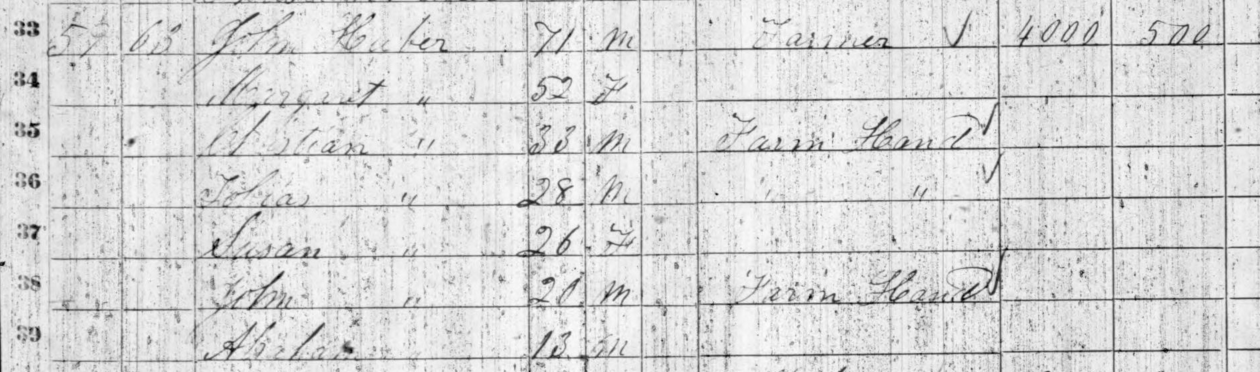 33 57 63 John Huber 71 M Farmer ✓ 4000 500
34 Margret " 52 F
35 Christian " 33 M Farm Hand ✓
36 Tobias " 28 M " " ✓
37 Susan " 26 F
38 John " 20 M Farm Hand ✓
39 13 M